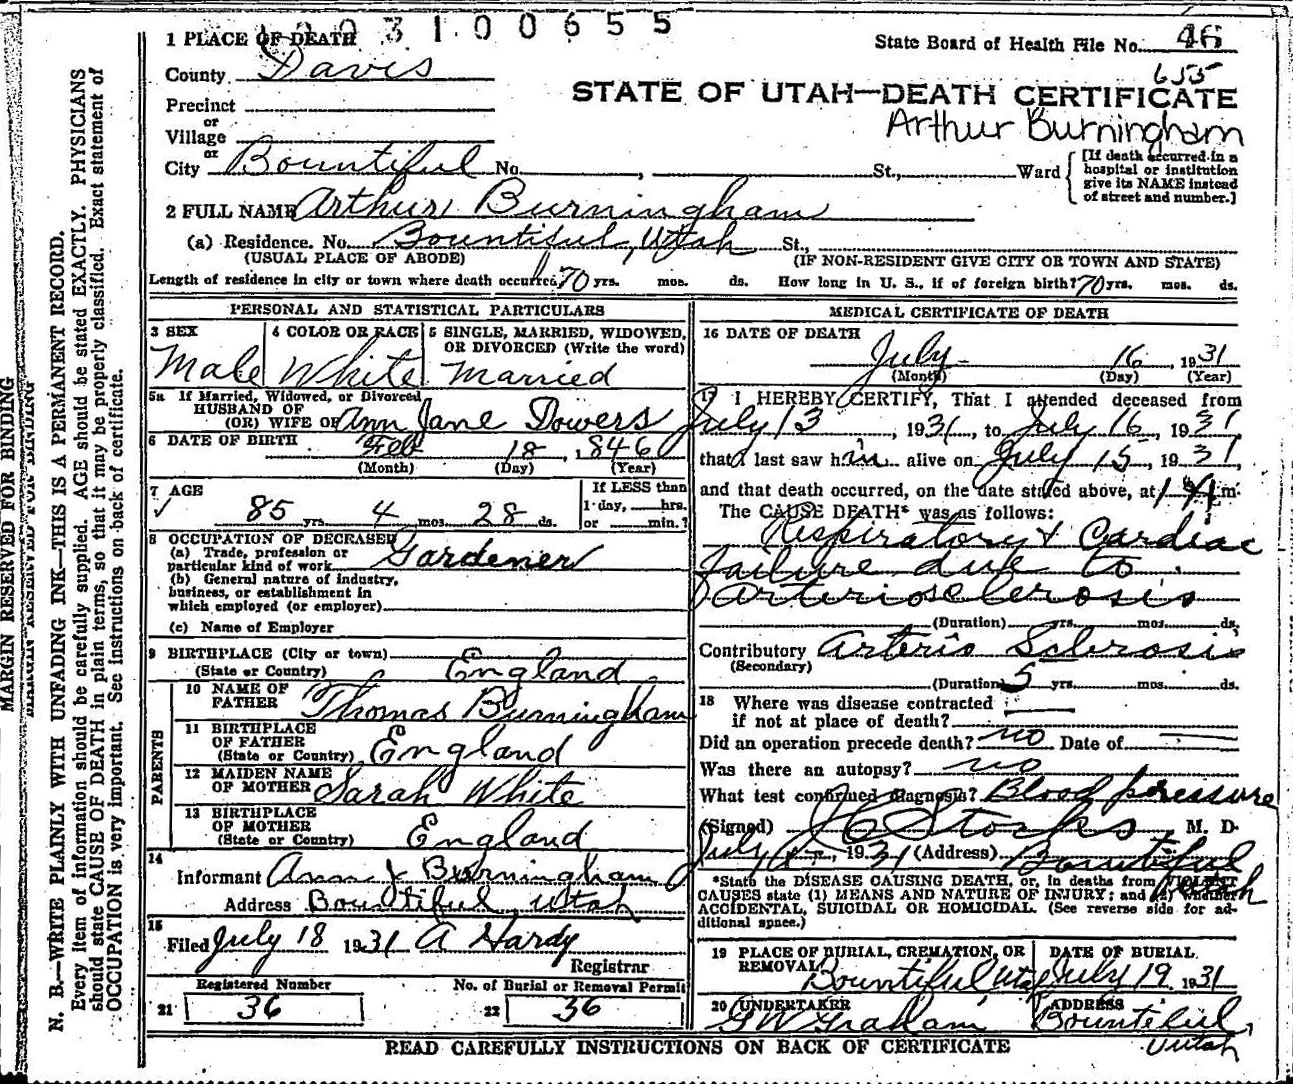 3 1 0 0 6 5 5
1 PLACE OF DEATH
State Board of Health File No. 46
655
County Davis
STATE OF UTAH—DEATH CERTIFICATE
Precinct
or
Arthur Burningham
Village
or
City Bountiful No. , St., Ward
[If death occurred in a
hospital or institution
give its NAME instead
of street and number.]
2 FULL NAME Arthur Burningham
(a) Residence. No. Bountiful, Utah St.,
(USUAL PLACE OF ABODE) (IF NON-RESIDENT GIVE CITY OR TOWN AND STATE)
Length of residence in city or town where death occurred, 70 yrs. mos. ds. How long in U. S., if of foreign birth? 70 yrs. mos. ds.
PERSONAL AND STATISTICAL PARTICULARS
3 SEX
Male
4 COLOR OR RACE
White
5 SINGLE, MARRIED, WIDOWED,
OR DIVORCED (Write the word)
Married
5a If Married, Widowed, or Divorced
HUSBAND OF
(OR) WIFE OF Ann Jane Dowers
6 DATE OF BIRTH Feb 18, 1846
(Month) (Day) (Year)
7 AGE
✓ 85 yrs. 4 mos. 28 ds.
If LESS than
1 day, hrs.
or min.?
8 OCCUPATION OF DECEASED
(a) Trade, profession or
particular kind of work Gardener
(b) General nature of industry,
business, or establishment in
which employed (or employer)
(c) Name of Employer
9 BIRTHPLACE (City or town)
(State or Country) England
PARENTS
10 NAME OF
FATHER Thomas Burningham
11 BIRTHPLACE
OF FATHER
(State or Country) England
12 MAIDEN NAME
OF MOTHER Sarah White
13 BIRTHPLACE
OF MOTHER
(State or Country) England
14
Informant Ann J Burningham
Address Bountiful, Utah
15
Filed July 18 1931 A Hardy
Registrar
Registered Number
21 36
No. of Burial or Removal Permit
22 36
MEDICAL CERTIFICATE OF DEATH
16 DATE OF DEATH
July 16, 1931
(Month) (Day) (Year)
17 I HEREBY CERTIFY, That I attended deceased from
July 13, 1931, to July 16, 1931,
that I last saw him alive on July 15, 1931,
and that death occurred, on the date stated above, at 1 A m.
The CAUSE DEATH* was as follows:
Respiratory & Cardiac
failure due to
arteriosclerosis
(Duration) yrs. mos. ds.
Contributory Arterio Sclerosis
(Secondary)
(Duration) 5 yrs. mos. ds.
18 Where was disease contracted
if not at place of death?
Did an operation precede death? no Date of
Was there an autopsy? no
What test confirmed diagnosis? Blood pressure
(Signed) Stocks, M. D.
July, 1931 (Address) Bountiful
Utah
*State the DISEASE CAUSING DEATH, or, in deaths from VIOLENT
CAUSES state (1) MEANS AND NATURE OF INJURY; and (2) whether
ACCIDENTAL, SUICIDAL OR HOMICIDAL. (See reverse side for ad-
ditional space.)
19 PLACE OF BURIAL, CREMATION, OR
REMOVAL
Bountiful Utah
DATE OF BURIAL
July 19 1931
20 UNDERTAKER
G W Graham
ADDRESS
Bountiful,
Utah
READ CAREFULLY INSTRUCTIONS ON BACK OF CERTIFICATE
MARGIN RESERVED FOR BINDING
MARGIN RESERVED FOR BINDING
N. B.—WRITE PLAINLY WITH UNFADING INK—THIS IS A PERMANENT RECORD.
Every item of information should be carefully supplied. AGE should be stated EXACTLY. PHYSICIANS
should state CAUSE OF DEATH in plain terms, so that it may be properly classified. Exact statement of
OCCUPATION is very important. See instructions on back of certificate.